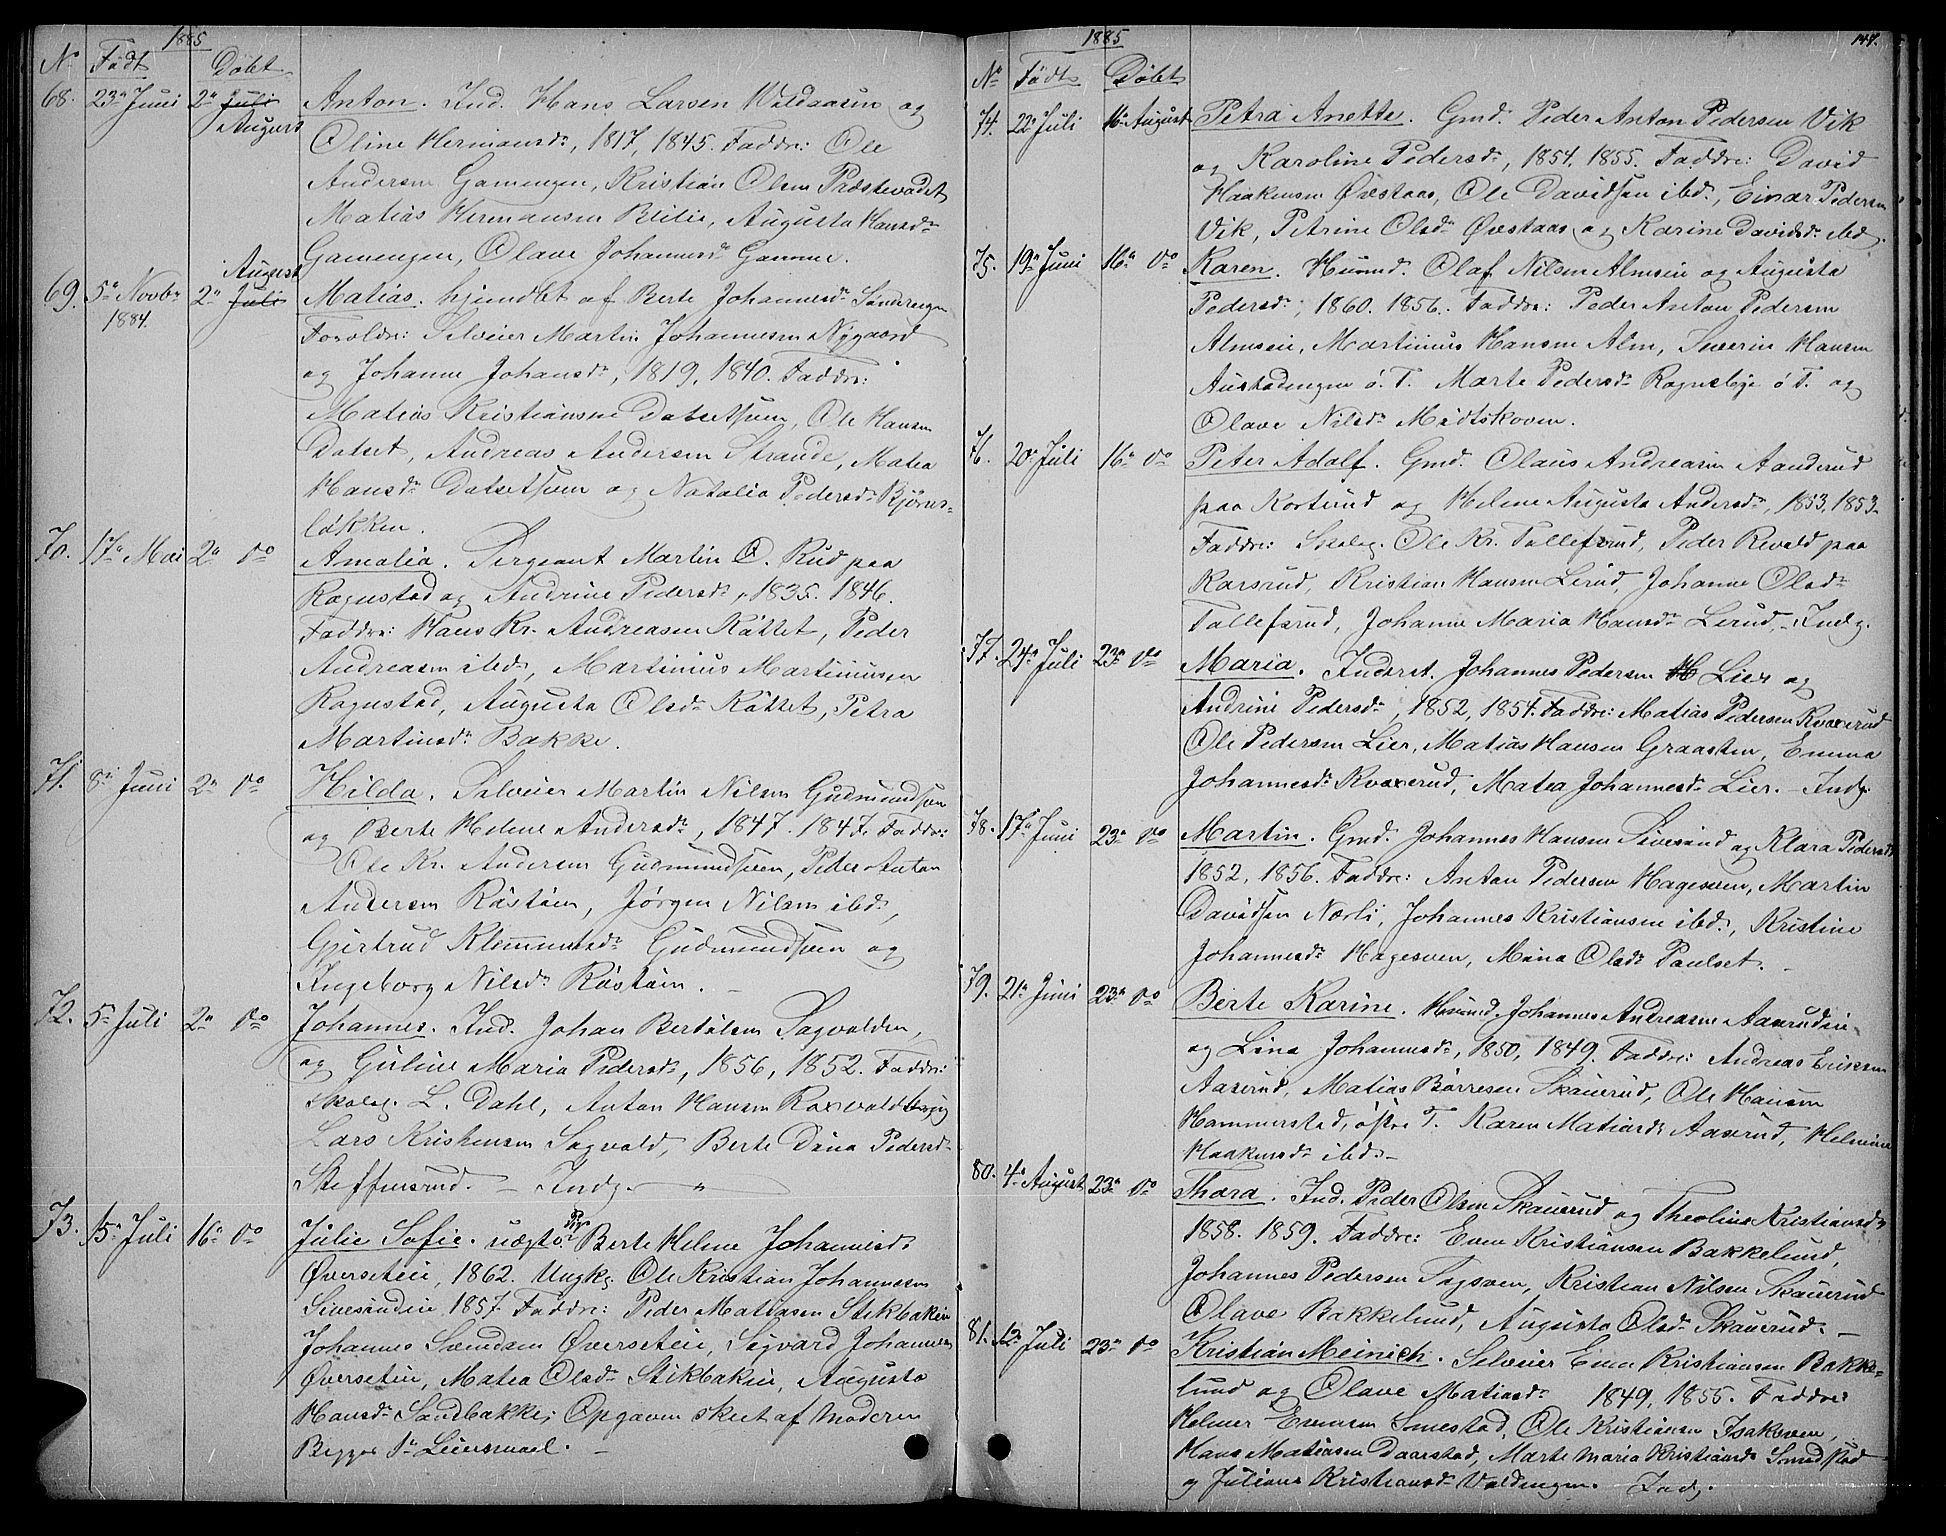 1885
N. Født Døbt
68. 23de Juni 2den Juli August Anton. Ind. Hans Larsen Waldaasen og
Oline Hermansd., 1817, 1845. Faddre: Ole
Andersen Gamengen, Kristian Olsen Præstevadet
Matias Hermansen Blilie, Augusta Hansdr
Gamengen, Olave Johannesdr Gamme.
69. 5te Novbr 1884. 2den Juli August Matias. hjemdbt af Berte Johannesdr Sønderengen
Forældre: Selveier Martin Johannesen Nygaard
og Johanne Johansdr, 1819, 1840. Faddre:
Matias Kristiansen Dalsetsven, Ole Hansen
Dalset, Andreas Andersen Strande, Matea
Hansdr Dalsetsven og Natalia Pedersdr Bjørnes=
løkken.
70. 17de Mai 2den Do Amalia. Sergeant Martin O. Rud paa
Rognstad og Andrine Pedersdr, 1835. 1846.
Faddre: Hans Kr. Andreasen Røttet, Peder
Andreasen ibd, Martinius Martiniusen
Rognstad, Augusta Olsdr Røttet, Petra
Martinsdr Bakke.
71. 8de Juni 2den Do Hilda. Selveier Martin Nilsen Gudmundsven
og Berte Helene Andersdr, 1847. 1847. Faddre:
Ole Kr. Andersen Gudmundsven, Peder Anton
Andersen Røstøen, Jørgen Nilsen ibd,
Gjertrud Klemmetsdr Gudmundsven og
Ingeborg Nilsdr Røstøen. –
72. 5te Juli 2den Do Johannes. Ind. Johan Bertelsen Sagvolden,
og Guline Maria Pedersdr, 1856, 1852. Faddre:
Skolelg. L. Dahl, Anton Hansen
Lars Kristensen Sagvold, Berte Dina Pedersd–
Steffensrud. – Indg. – " –
73. 15de Juli 16de Do Julie Sofie. uægte. Pige Berte Helene Johannesd.
Øverseteie, 1862. Ungk. Ole Kristian Johannesen
Sivesindeie, 1857. Faddre: Peder Matiasen Stikbakeie
Johannes Svendsen Øverseteie, Sigvard Johannesen
Øverseteie, Matea Olsdr Stikbakeie, Augusta
Hansdr Sandbakke; Opgaven skeet af Moderen
Begges 1ste Leiermaal. –
1885 147.
No Født Døbt
74. 22de Juli 16de August Petra Anette. Gmd. Peder Anton Pedersen Vik
og Karoline Pedersdr, 1854. 1855. Faddre: David
Haakensen Øvestaas, Ole Davidsen ibd., Einar Pedersen
Vik, Petrine Olsdr Øvestaas og Karine Davidsdr ibd.
75. 19de Juni 16de Do Karen. Husmd. Olaf Nilsen Almseie og Augusta
Pedersdr, 1860. 1856. Faddre: Peder Anton Pedersen
Almseie, Martinius Hansen Alm, Severin Hansen
Austadengen ø. T. Marte Pedersdr Rognelye ø T. og
Olave Nilsdr Midtskoven.
76. 20de Juli 16de Do Peter Adolf. Gmd. Claus Andreasen Aanderud
paa Korterud og Helene Augusta Andersdr, 1853, 1853.
Faddre: Skolelg. Ole Kr. Tollefsrud, Peder Revold paa
Karsrud, Kristian Hansen Lerud, Johanne Olsdr
Tollefsrud, Johanne Maria Hansdr Lerud. – Indg.
77. 24de Juli 23de Do Maria. Inderst. Johannes Pedersen Lier og
Andrine Pedersdr, 1852, 1854. Faddre: Matias Pedersen Kværerud
Ole Pedersen Lier, Matias Hansen Graasten, Emma
Johannesdr Kværerud, Matea Johannesdr Lier. – Indg.
78. 17de Juni 23de Do Martin. Gmd. Johannes Hansen Sivesind og Klara Pedersdr
1852, 1856. Faddre: Anton Pedersen Hagesveen, Martin
Davidsen Nærli, Johannes Kristiansen ibd., Kristine
Johannesdr Hagesven, Mina Olsdr Paulset. –
79. 21de Juni 23de Do Berte Karine. Husmd. Johannes Andreasen Aaserudeie
og Lina Johannesdr, 1850, 1849. Faddre: Andreas Eriksen
Aaserud, Matias Børresen Skauerud, Ole Hansen
Hammerstad, østre T. Karen Matiasdr Aaserud, Helmine
Haakensdr ibd. –
80. 4de August 23de Do Thora. Ind. Peder Olsen Skauerud og Theoline Kristiansdr
1858. 1859. Faddre: Even Kristiansen Bakkelund,
Johannes Pedersen Sagsven, Kristian Nilsen Skauerud
Olave Bakkelund, Augusta Olsdr Skauerud. –
81. 12te Juli 23de Do Kristian Meinich. Selveier Even Kristiansen Bakke=
lund og Olave Matiasdr 1849, 1855. Faddre:
Helmer Evensen Smestad, Ole Kristiansen Isaksven,
Hans Matiasen Daarstad, Marte Maria Kristiansdr Smedstad
og Juliane Kristiansdr Voldengen. Indg.